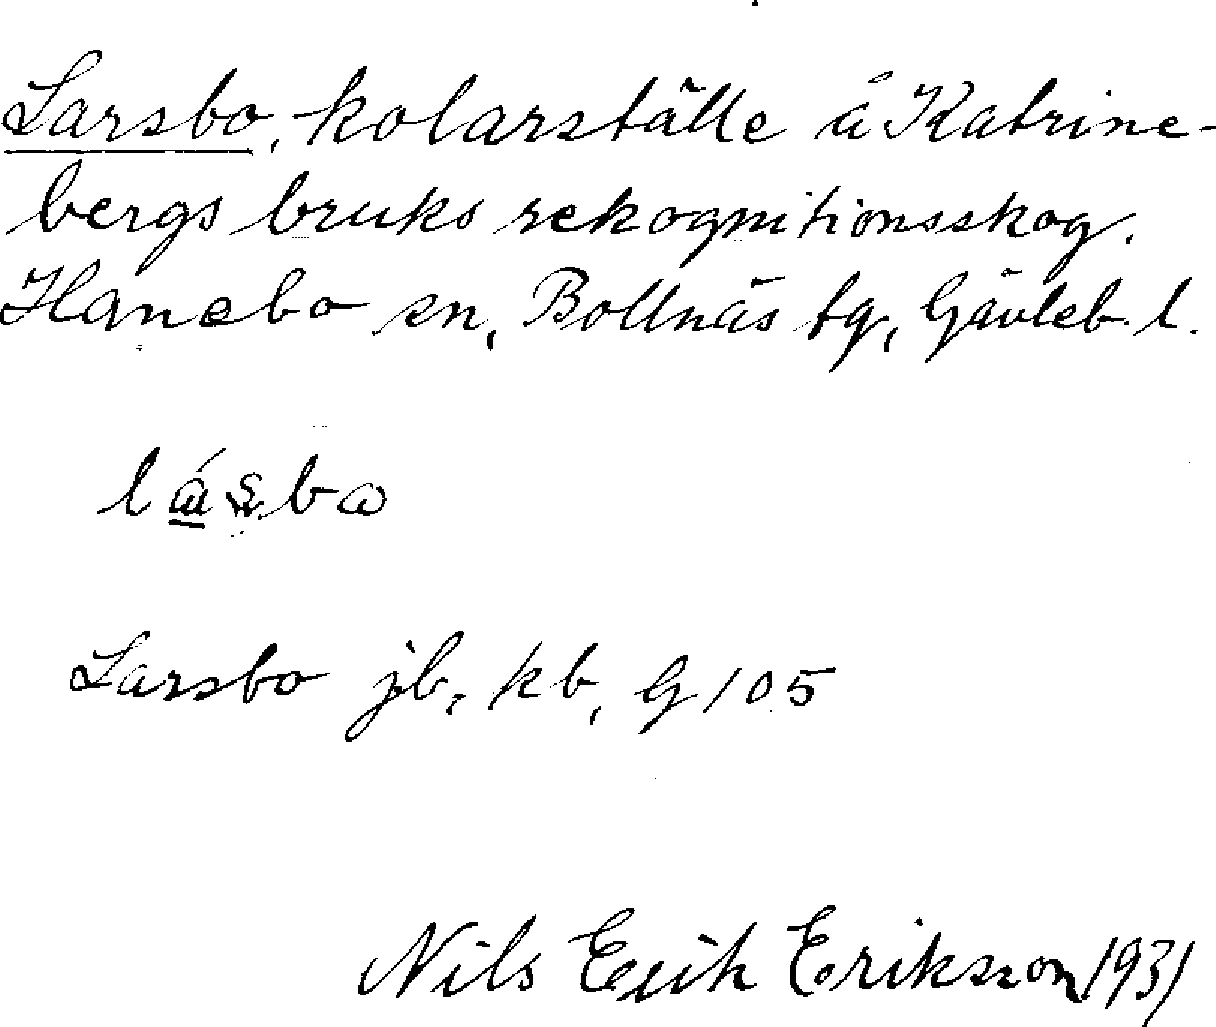 Larsbo, kolarställe å Katrine-
bergs bruks rekognitionsskog.
Hanebo sn, Bollnäs tg, Gävleb. l.
lásbo
Larsbo jb, kb, G 105
Nils Erik Eriksson 1931